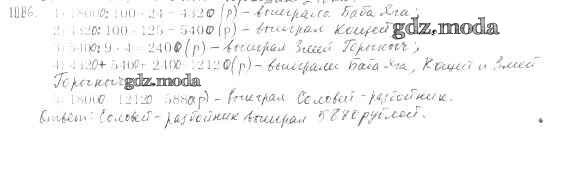 1) 18000:100·24=4320(р) – выиграла Баба Яга;
2) 4320:100·125=5400(р) – выиграл Кощей
gdz.moda
3) 5400:9·4=2400(р) – выиграл Змей Горыныч;
4) 4320+5400+2400=12120(р) – выиграли Баба Яга, Кощей и Змей
Горыныч
gdz.moda
18000 12120 5880(р) – выиграл Соловей-разбойник.
Ответ: Соловей-разбойник выиграл 5880 рублей.